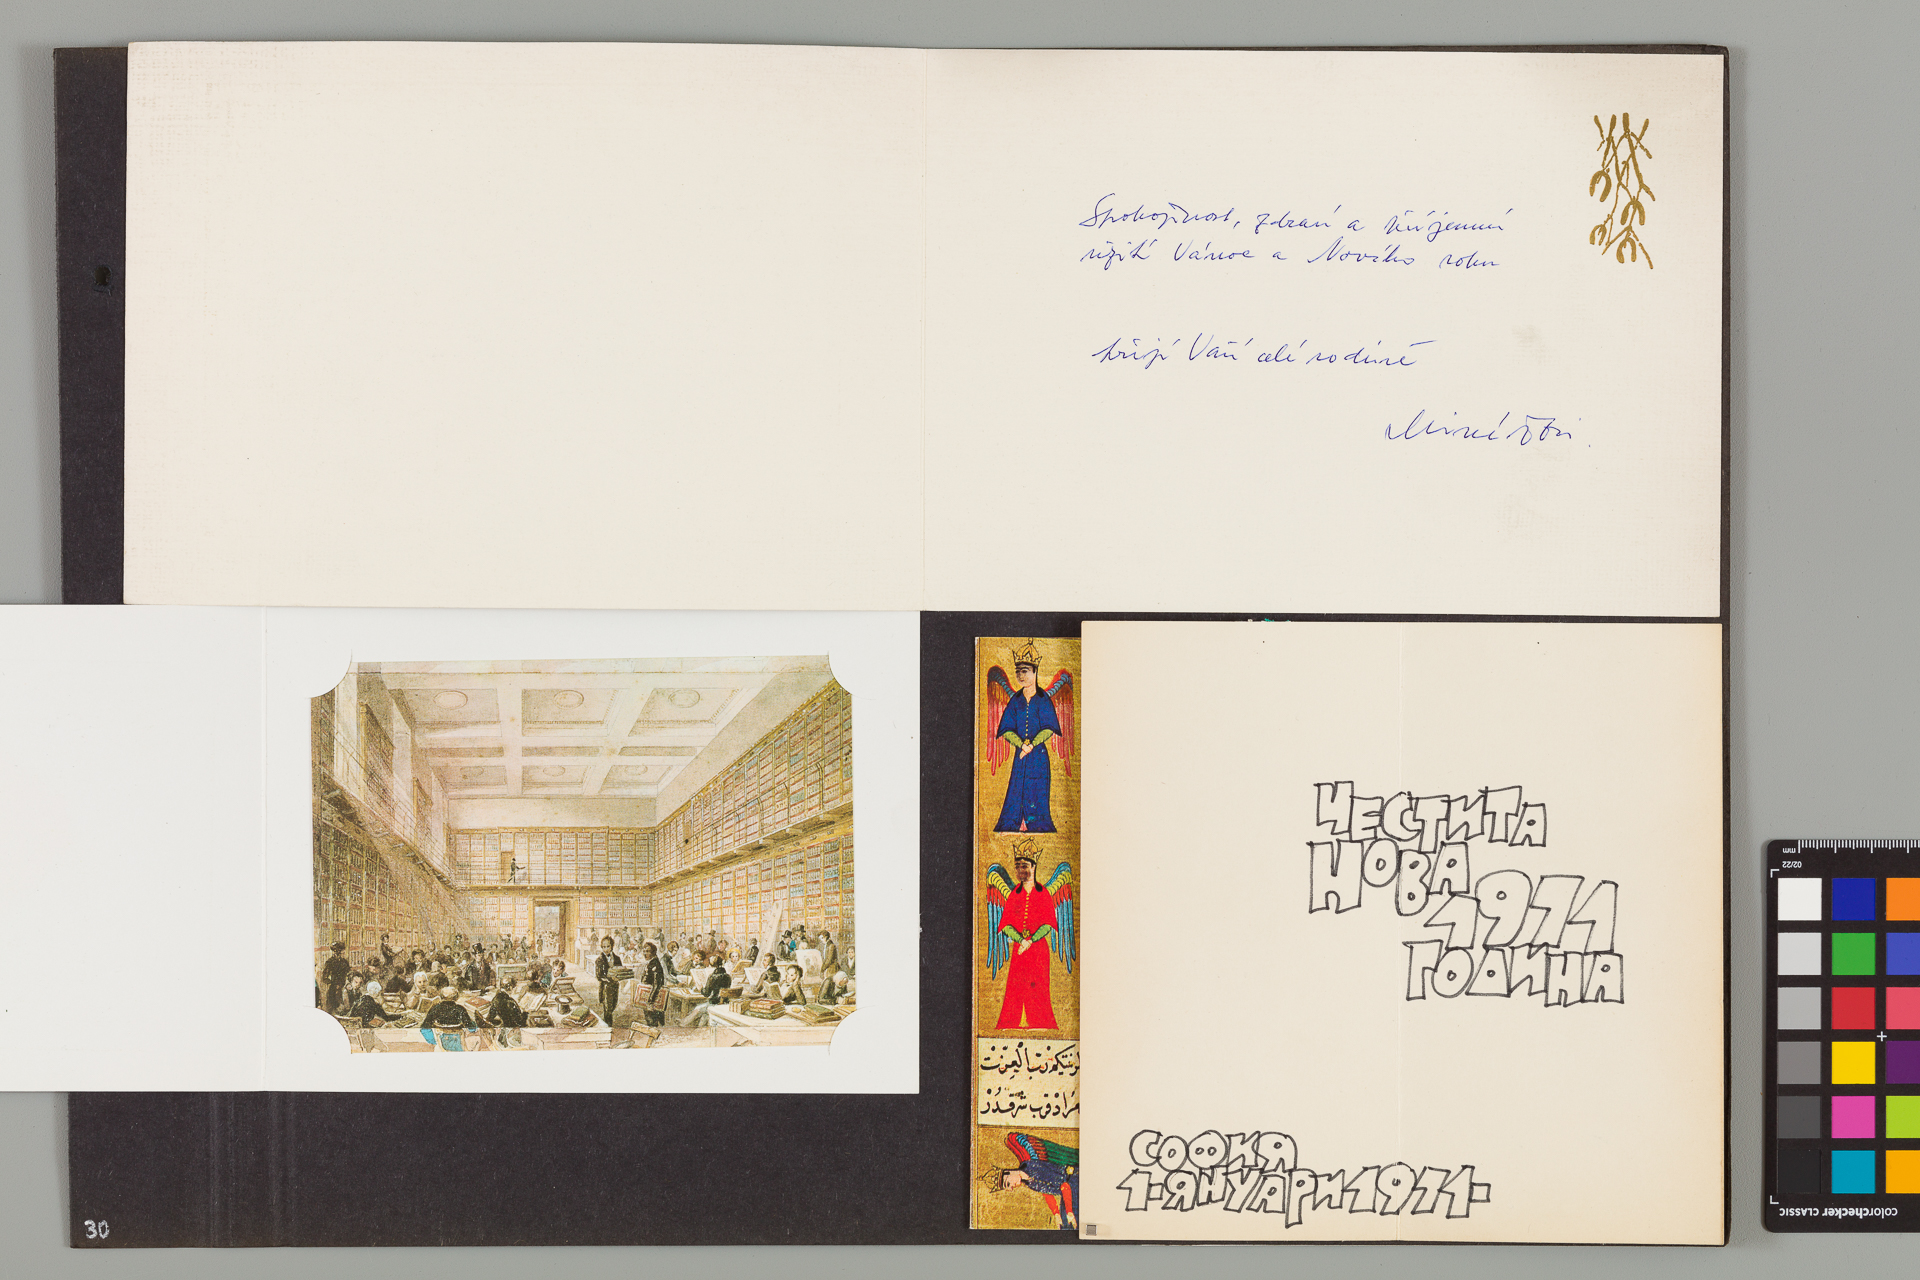 Spokojenost, zdraví a příjemné
užití Vánoc a Nového roku
přejí Vaší celé rodině
ЧЕСТИТА
НОВА
1971
ГОДИНА
СОФИЯ
1-ЯНУАРИ 1971-
30
mm
02/22
colorchecker CLASSIC